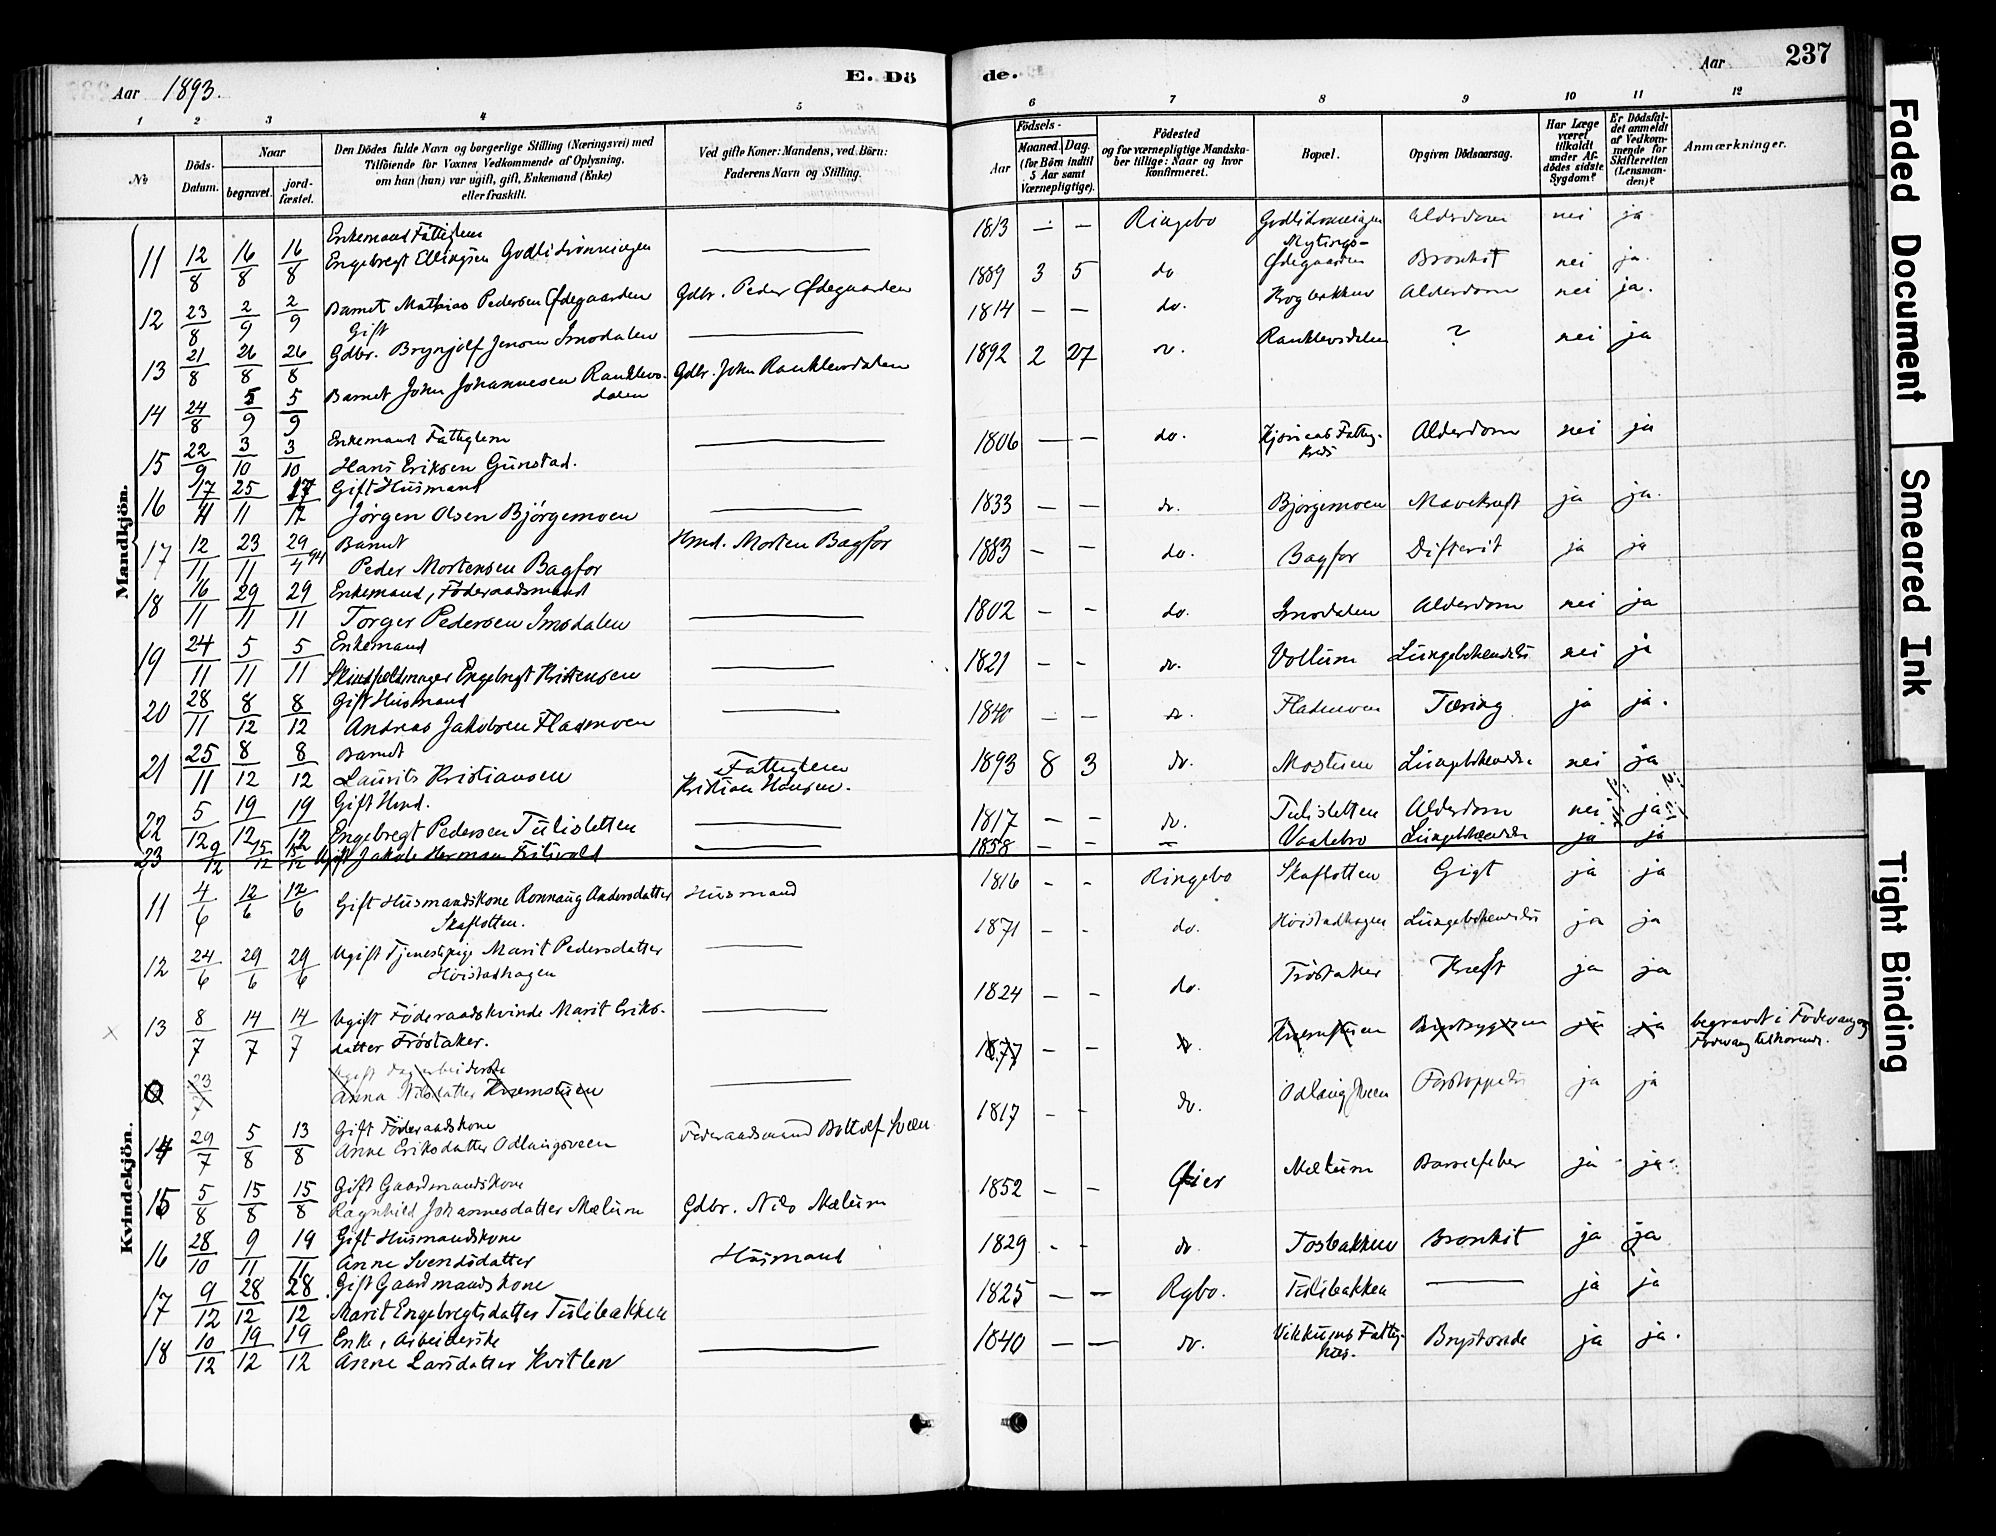 Aar 1893. E. Dö de. Aar 237
1 2 3 4 5 6 7 8 9 10 11 12
No. Döds-Datum. Naar begravet. jord-fæstet. Den Dödes fulde Navn og borgerlige Stilling (Næringsvei) med Tilföiende for Voxnes Vedkommende af Oplysning, om han (hun) var ugift, gift, Enkemand (Enke) eller fraskilt. Ved gifte Koner: Mandens, ved Börn: Faderens Navn og Stilling. Födsels- Aar Maaned. Dag. (for Börn indtil 5 Aar samt Værnepligtige). Födested og for værnepligtige Mandskaber tillige: Naar og hvor konfirmeret. Bopæl. Opgiven Dödsaarsag. Har Læge været tilkaldt under Afdödes sidste Sygdom? Er Dödsfaldet anmeldt af Vedkommende for Skifteretten (Lensmanden)? Anmærkninger.
Mandkjön.
11 12/8 16/8 16/8 Enkemand Fattiglem Engebregt Ellingsen Godlidsrønningen — 1813 — — Ringebo Godlidrønningen Alderdom nei ja
12 23/8 2/9 2/9 Barnet Mathias Pedersen Ødegaarden Gdbr. Peder Ødegaarden 1889 3 5 do Mytings-Ødegaarden Bronkit nei ja.
13 21/8 26/8 26/8 Gift Gdbr. Brynjolf Jensen Imsdalen — 1814 — — do. Alderdom nei ja.
14 24/8 5/9 5/9 Barnet John Johannesen Ranklevsdalen Gdbr. John Ranklevsdalen 1892 2 27 do. Ranklevsdalen ? nei ja
15 22/9 3/10 3/10 Enkemand Fattiglem Hans Eriksen Gunstad. — 1806 — — do. Alderdom nei ja
16 17/11 25/11 17/12 Gift Husmand Jörgen Olsen Björgemoen — 1833 — — do. Bjørgemoen Mavekræft ja ja.
17 12/11 23/11 29/4 94 Barnet Peder Mortensen Bagfor Hmd. Morten Bagfor 1883 — — do. Bagfor Difterit ja ja
18 16/11 29/11 29/11 Enkemand, Föderaadsmand Torger Pedersen Imsdalen — 1802 — — do. Imsdalen Alderdom nei ja
19 24/11 5/11 5/11 Enkemand Skindfeldmager Engebregt Kristensen — 1821 — — do. Vollum Lungebetændelse nei ja
20 28/11 8/12 8/12 Gift Husmand Andreas Jakobsen Fladmoen — 1840 — — do. Fladmoen Tæring ja ja.
21 25/11 8/12 8/12 Barnet Laurits Kristiansen Fattiglem Kristian Hansen. 1893 8 3 do. Mostuen Lungebetændelse nei ja
22 5/12 19/12 19/12 Gift Hmd. Engebregt Pedersen Tulisletten — 1817 — — do. Tulisletten Alderdom nei ja
23 9/12 15/12 15/12 Ugift Jakob Herman — 1858 — — — Vaalebro Lungebetændelse ja ja
Kvindekjön.
11 4/6 12/6 12/6 Gift Husmandskone Rønnaug Andersdatter Skaflotten. Husmand 1816 — — Ringebo Skaflotten Gigt ja ja
12 24/6 29/6 29/6 Ugift Tjenestpige Marit Pedersdatter Høistadhagen — 1871 — — do. Høistadhagen Lungebetændelse ja ja
13 8/7 14/7 14/7 Ugift Föderaadskvinde Marit Eriksdatter Fröstaker. — 1824 — — do. Fröstaker Kræft ja ja
0 23/7 Ugift dagarbeiderske Anna Nilsdatter Kræmstuen — 1877 — — do. Kræmstuen Brystsygdom ja ja begravet i Fødvang og Fødvang tilhørende.
14 29/7 5/8 13/8 Gift Föderaadskone Anne Eriksdatter Odlaugsveen Föderaadsmand Bottolf Sveen 1817 — — do. Odlaugsveen Forstoppelse ja ja
15 5/8 15/8 15/8 Gift Gaardmandskone Ragnhild Johannesdatter Mælum Gdbr. Nils Mælum 1852 — — Öier Mælum Barselfeber ja ja
16 28/10 9/11 19/11 Gift Husmandskone Anne Svendsdatter Husmand 1829 — — do. Tosbakken Bronkit ja ja
17 9/12 28/12 28/12 Gift Gaardmandskone Marit Engebregtsdatter Tulibakken 1825 — — Rgbo. Tulibakken — ja ja
18 10/12 19/12 19/12 Enke, Arbeiderske Anne Larsdatter Kvitlen — 1840 — — do. Brystonde ja ja.
Faded Document
Smeared Ink
Tight Binding